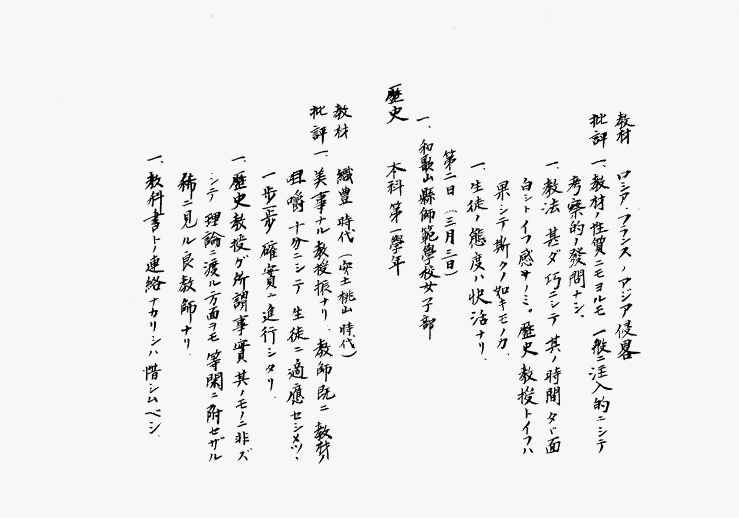 教材　ロシア、フランスノアジア侵畧
批評　一、教材ノ性質ニモヨルモ一般ニ注入的ニシテ
考察的ノ發問ナシ、
一、教法甚ダ巧ニシテ其ノ時間タヾ面
白シトイフ感ナノミ。歴史教授トイフハ
果シテ斯クノ如キモノカ、
一、生徒ノ態度ハ快活ナリ、
第二日（三月三日）
一、和歌山縣師範學校女子部
歴史　本科第一學年
教材　織豊時代（安土桃山時代）
批評　一、美事ナル教授振ナリ、教師既ニ教材ノ
咀嚼十分ニシテ生徒ニ適應セシメツヽ
一歩一歩確實ニ進行シタリ、
一、歴史教授ガ所謂事實其ノモノニ非ズ
シテ理論ニ渡ル方面ヲモ等閑ニ附セザル
稀ニ見ル良教師ナリ、
一、教科書トノ連絡ナカリシハ惜シムベシ、